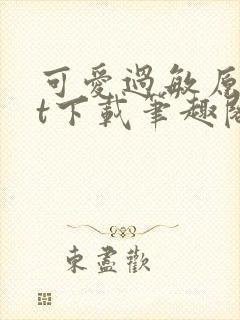 可愛過敏原
t下載筆趣閣
東盡歡